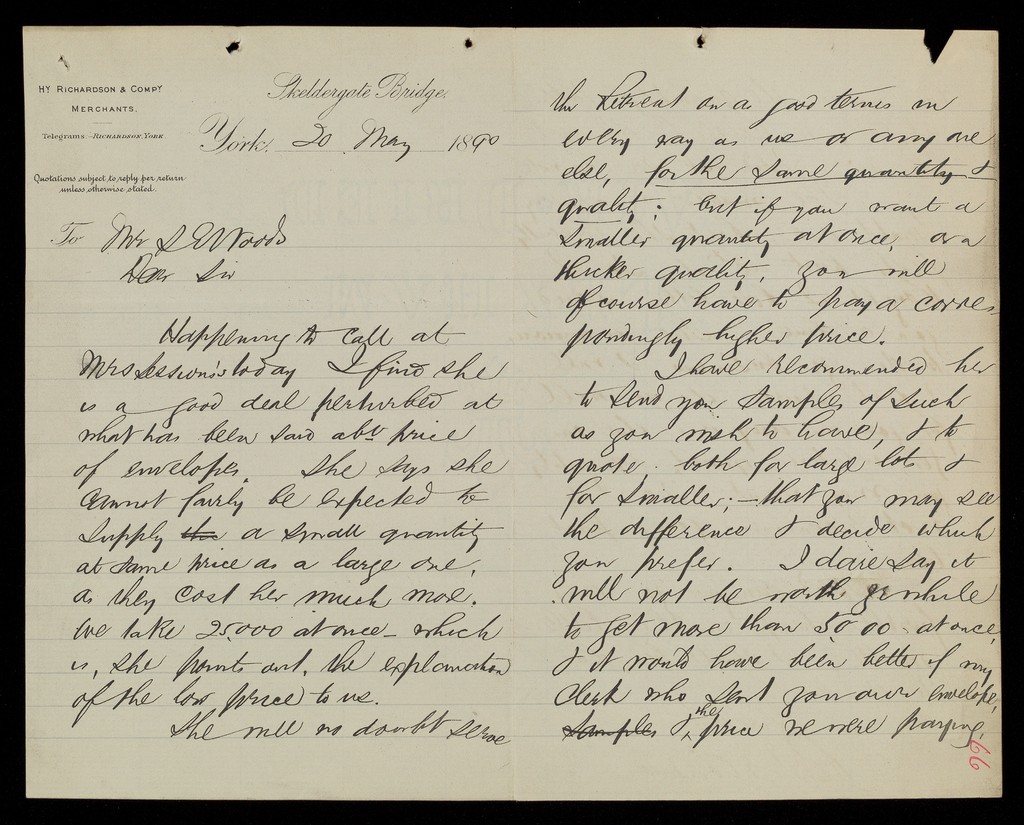 Hy. Richardson & Compy.
Merchants.
Telegrams:-Richardson, York.
Quotations subject to reply per return
unless otherwise stated.
Skeldergate Bridge,
York, 20 May 1890
To Mr S E Woods
Dear Sir
Happening to call at
Mrs Sessions's today I find she
is a good deal perturbed at
what has been said abt price
of envelopes. She says she
cannot fairly be expected to
supply the a small quantity
at same price as a large one,
as they cost her much more.
We take 25,000 at once - which
is, she points out, the explanation
of the low price to us.
She will no doubt serve
the Retreat on as good terms in
every way as us or any one
else, for the same quantity &
quality; but if you want a
smaller quantity at once, or a
thicker quality, you will
of course have to pay a corres-
pondingly higher price.
I have recommended her
to send you samples of such
as you wish to have, & to
quote both for large lots &
for smaller; - that you may see
the difference & decide which
you prefer. I dare say it
will not be worth yr while
to get more than 5000 at once,
& it would have been better if my
clerk who sent you our envelope
samples & the price we were paying,
66